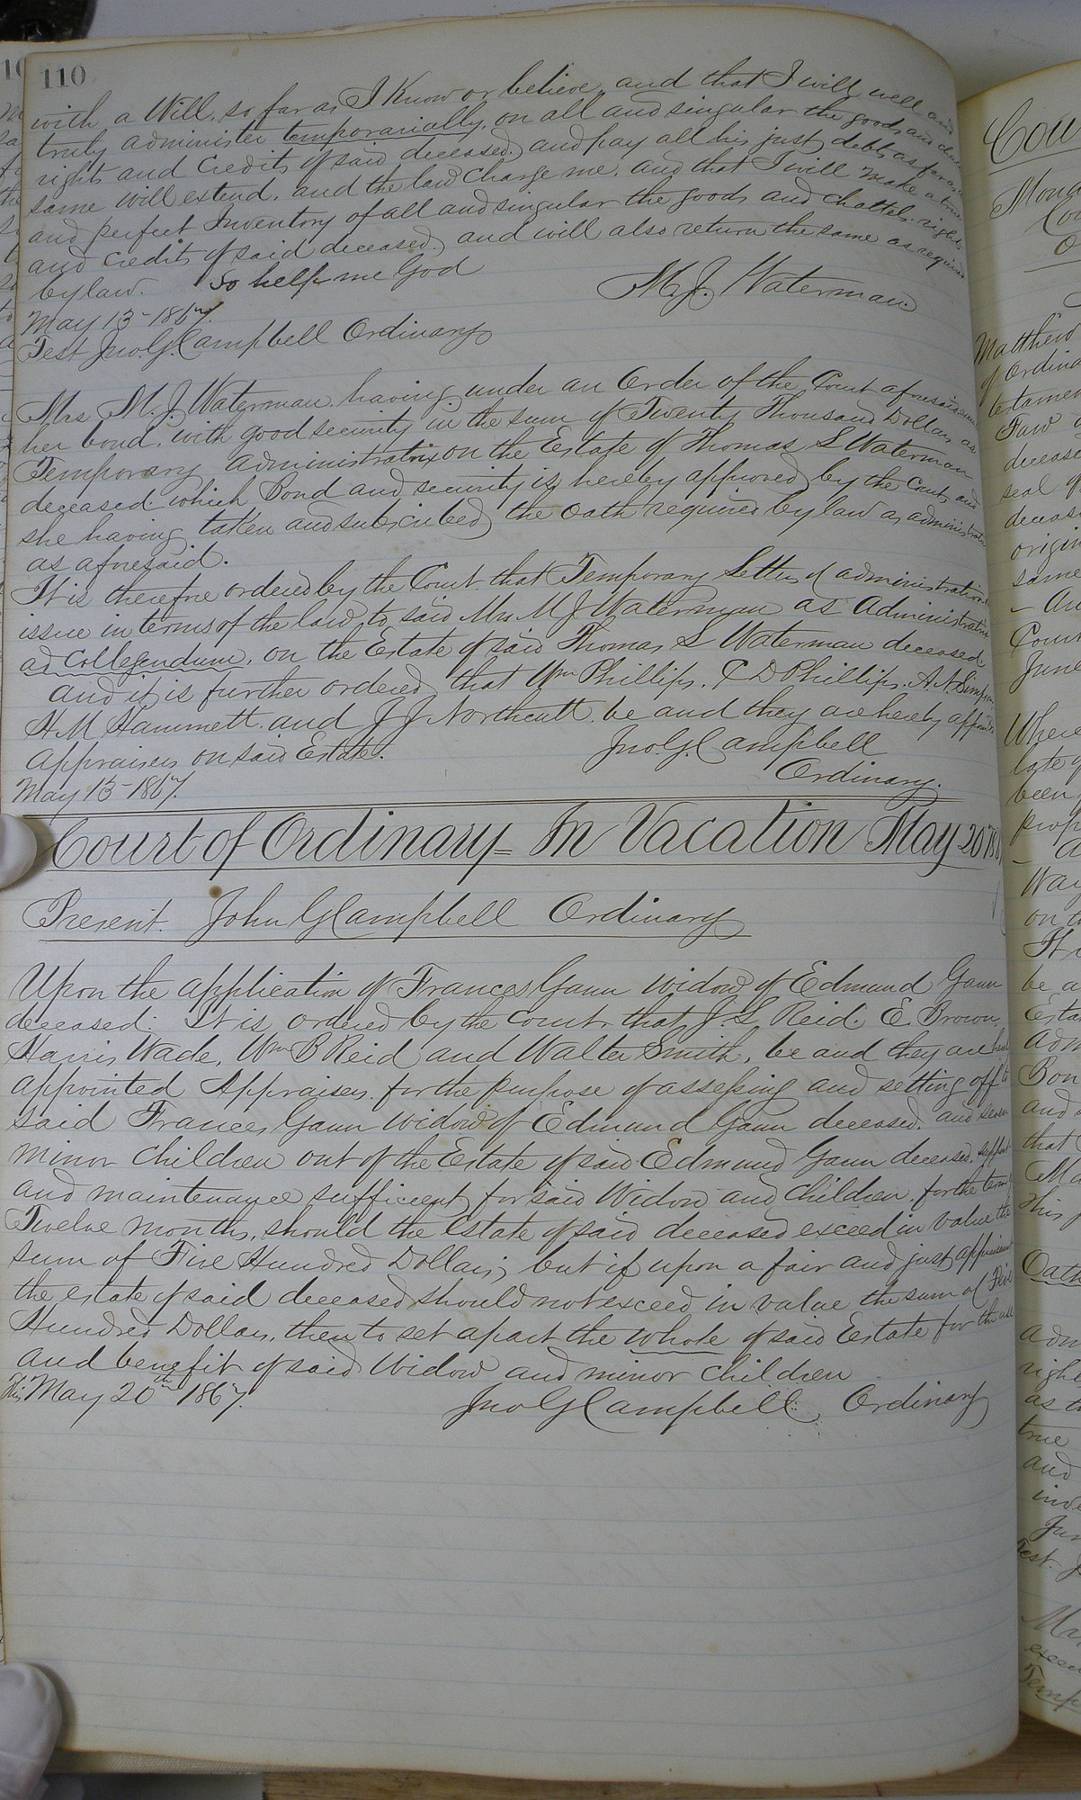 110
with a Will, so far as I Know or believe, and that I will well and
truly administer temporarially, on all and singular the goods and
rights and Credits of said deceased, and pay all his just debts as far as
same will extend, and the law Charge me, and that I will make a true
and perfect Inventory of all and singular the goods and chattels, rights
and credits of said deceased, and will also return the same as required
by law. So help me God
M. J. Waterman
May 13 - 1867.
Test Jno. G. Campbell Ordinary
Mrs M. J. Waterman having under an Order of the Court aforesaid
her bond, with good security in the sum of Twenty Thousand Dollars as
Temporary administratrix on the Estate of Thomas S Waterman
deceased which Bond and security is hereby approved by the Court and
she having taken and subscribed the oath required by law as administratrix
as aforesaid.
It is therefore ordered by the Court that Temporary Letters of administration
issue in terms of the law to said Mrs M J Waterman as Administratrix
ad Collegendum, on the Estate of said Thomas S Waterman deceased
and it is further ordered that Wm Phillips, C D Phillips, A. N. Simpson
H. M Hammett and J J Northcutt be and they are hereby appointed
appraisers on said Estate.
Jno G. Campbell
Ordinary.
May 13 - 1867.
Court of Ordinary - In Vacation May 20th
Present. John G Campbell Ordinary
Upon the application of Frances Gann widow of Edmund Gann
deceased: It is ordered by the court that J. L Reid E. Brown,
Harris Wade, Wm B Reid and Walter Smith, be and they are
appointed Appraisers for the purpose of assessing and setting off to
said Frances Gann widow of Edmund Gann deceased. and seven
minor children out of the Estate of said Edmund Gann deceased, support
and maintenance sufficient for said Widow and Children for the term
Twelve months, should the Estate of said deceased exceed in value the
sum of Five Hundred Dollars, but if upon a fair and just appraisement
the estate of said deceased should not exceed in value the sum of Five
Hundred Dollars, then to set apart the whole of said Estate for the use
and benefit of said Widow and minor children
This May 20th 1867.
Jno G Campbell Ordinary